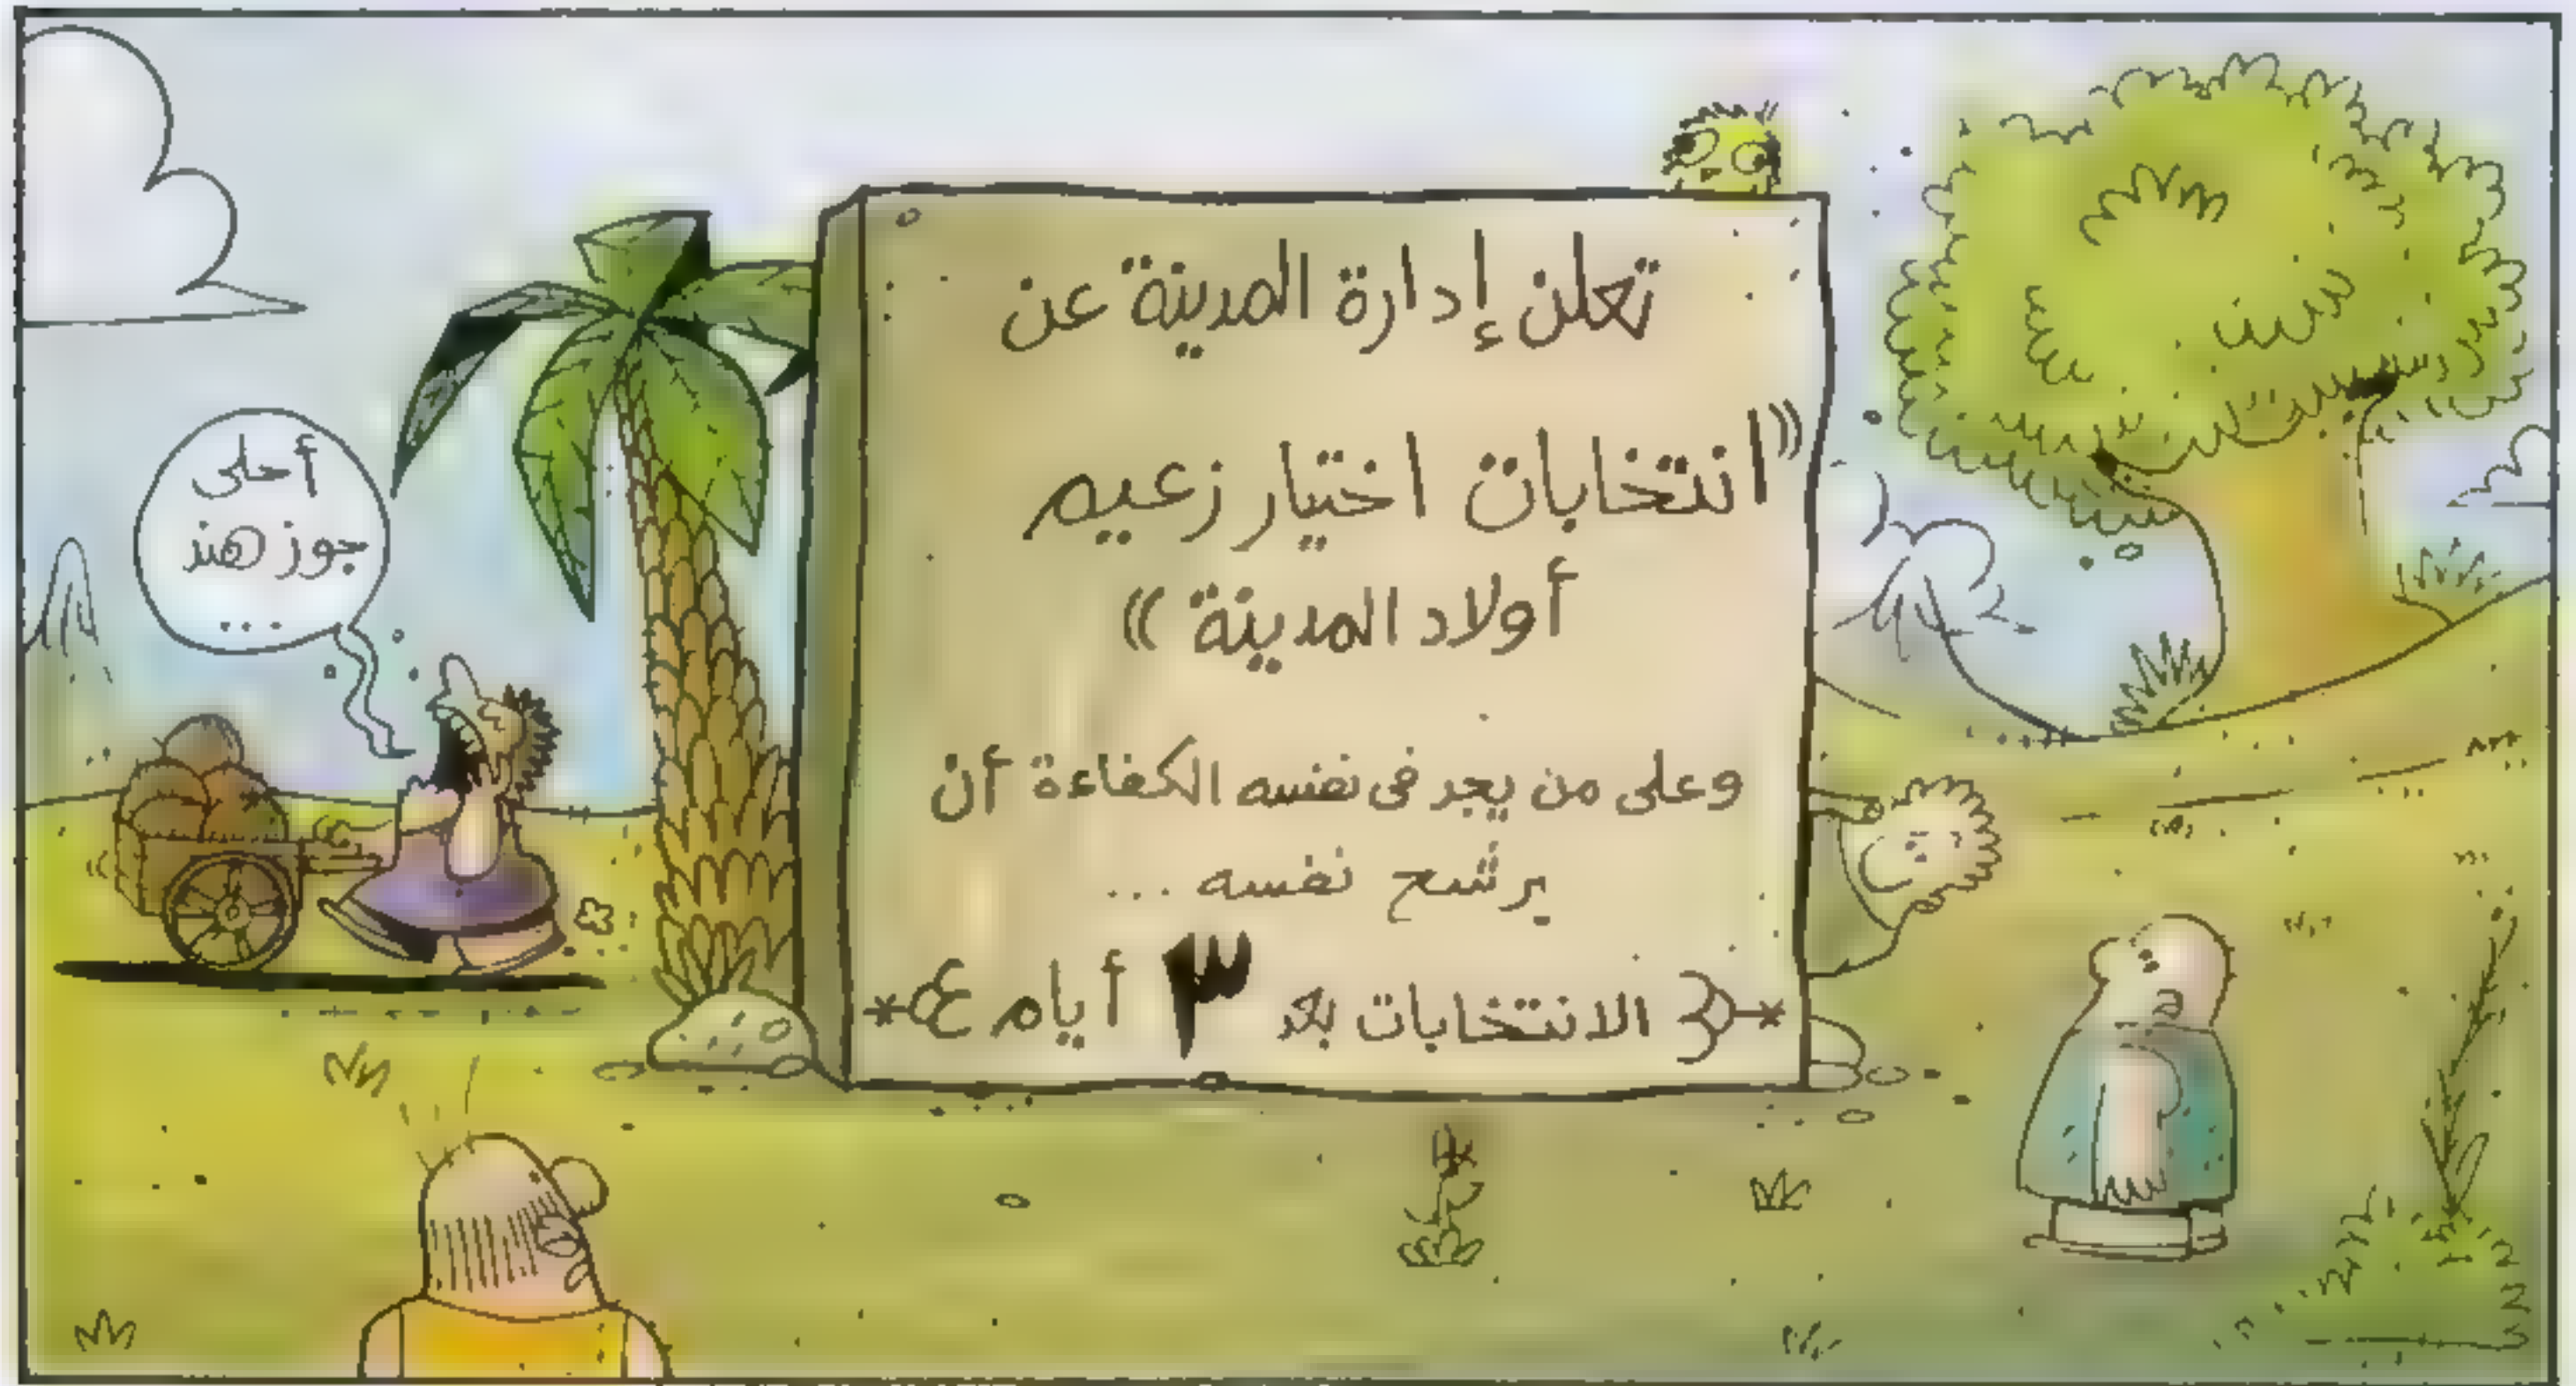 تعلن إدارة المدينة عن
"انتخابات اختيار زعيم
أولاد المدينة"
وعلى من يجد فى نفسه الكفاءة أن
يرشح نفسه ...
الانتخابات بعد ٣ أيام
أحلى
جوز هند
...